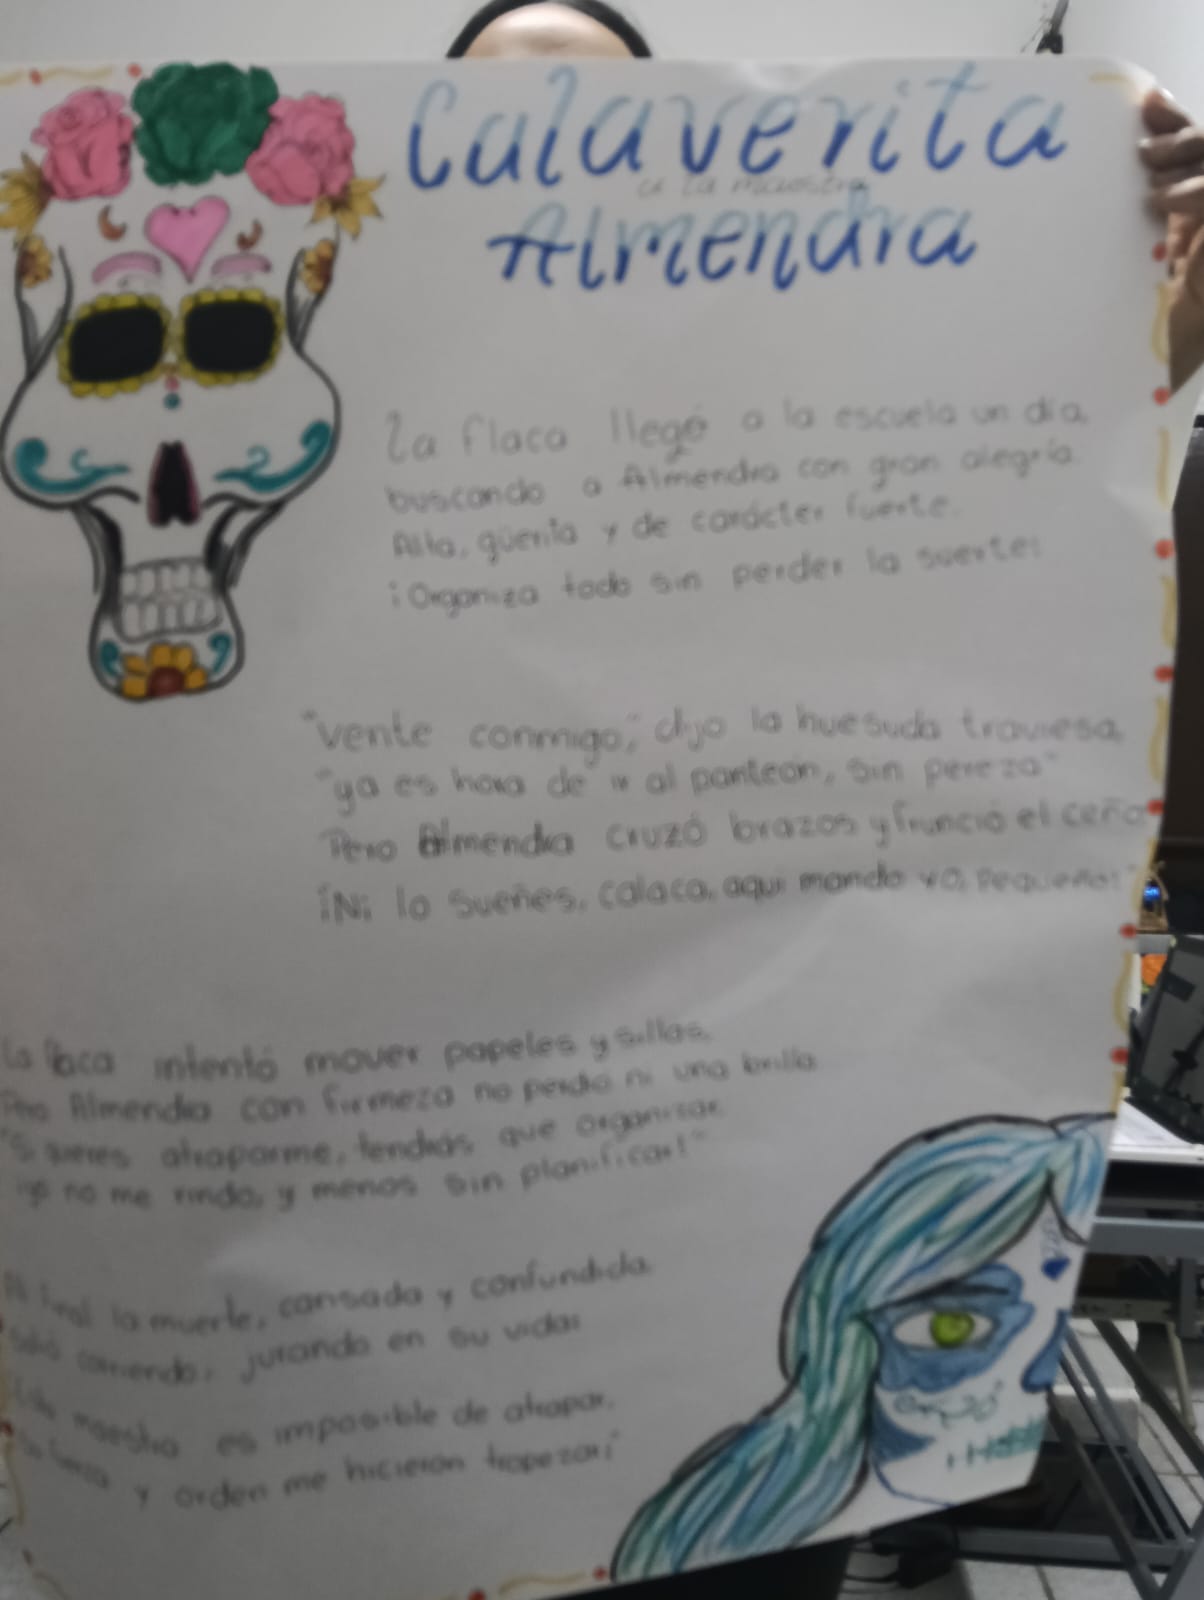 Calaverita
a la maestra
Almendra
La flaca llegó a la escuela un día,
buscando a Almendra con gran alegría.
Alta, güerita y de carácter fuerte.
¡Organiza todo sin perder la suerte!
"Vente conmigo," dijo la huesuda traviesa,
"ya es hora de ir al panteón, sin pereza"
Pero Almendra cruzó brazos y frunció el ceño
¡Ni lo sueñes, calaca, aquí mando yo, pequeño!"
La flaca intentó mover papeles y sillas,
Pero Almendra con firmeza no perdió ni una brilla
"Si quieres atraparme, tendrás que organizar
¡yo no me rindo, y menos sin planificar!"
Al final la muerte, cansada y confundida
Salió corriendo, jurando en su vida:
maestra es imposible de atrapar,
Su fuerza y orden me hicieron tropezar!"